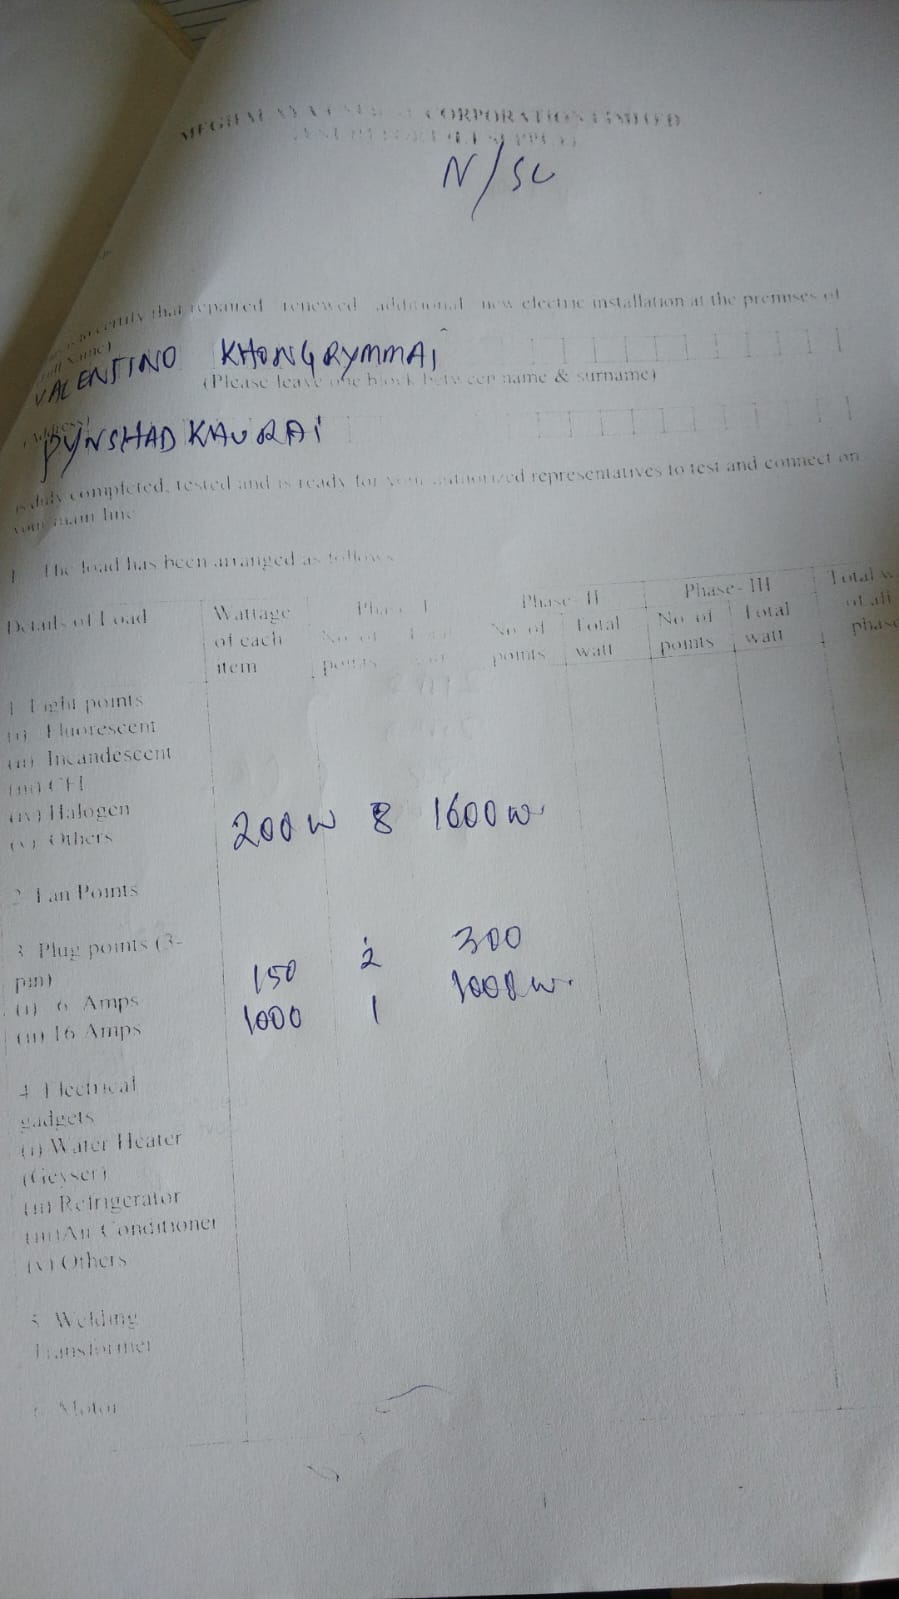 MEGHALAYA ENERGY CORPORATION LIMITED
N/SC
certify that repaired renewed additional new electric installation at the premises of
Name)
VALENTINO KHONGRYMMAI
(Please leave one block between name & surname)
(Address)
PYNSHAD KAURAI
is duly completed, tested and is ready for your authorized representatives to test and connect on
your main line
1 The load has been arranged as follows
Details of Load Wattage of each item Phase- I No of points Total watt Phase- II No of points Total watt Phase- III No of points Total watt Total of all phase
1 Light points
(i) Fluorescent
(ii) Incandescent
(iii) CFL
(iv) Halogen
(v) Others 200 W 8 1600 W
2 Fan Points
3 Plug points (3-
pin)
(i) 6 Amps 150 2 300
(ii) 16 Amps 1000 1 1000 W
4 Electrical
gadgets
(i) Water Heater
(Geyser)
(ii) Refrigerator
(iii) Air Conditioner
(v) Others
5 Welding
Transformer
6 Motor